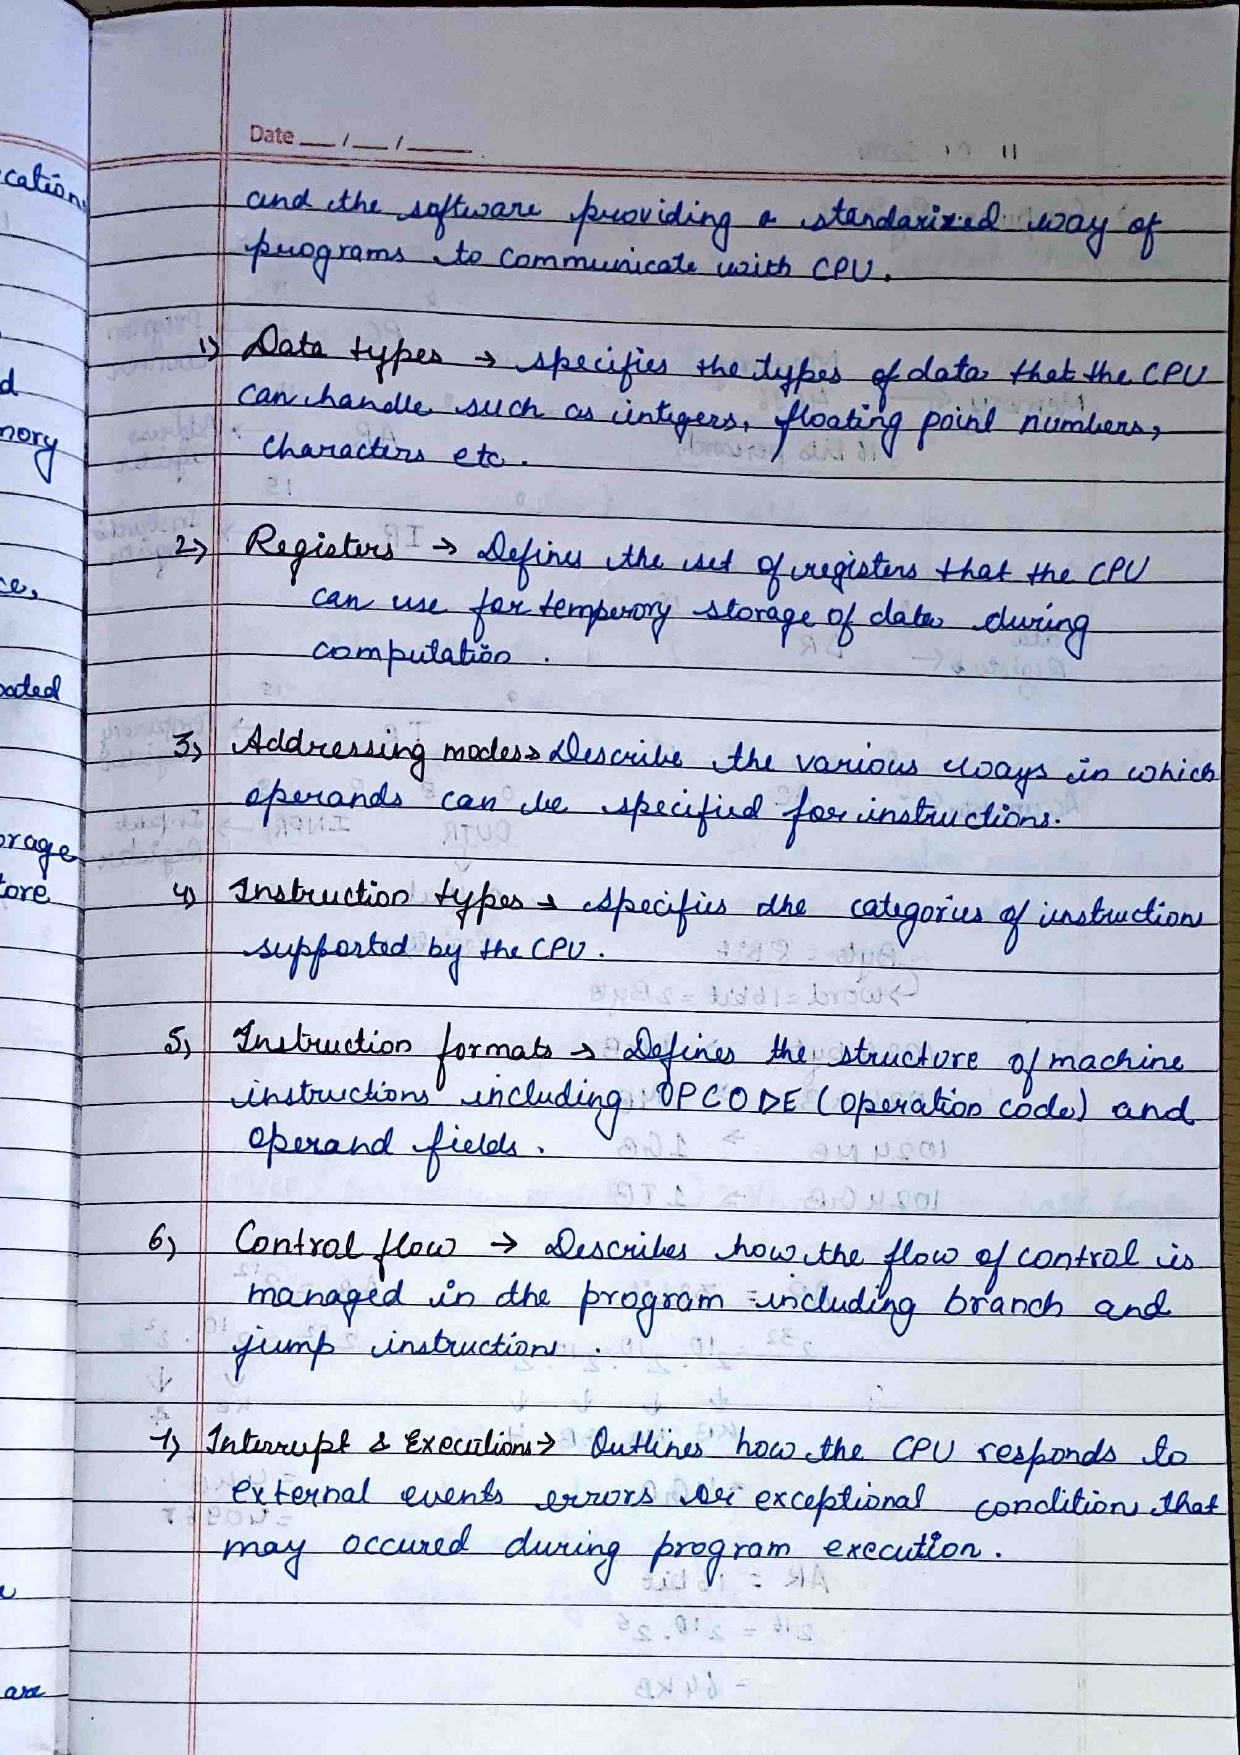 cation
d
mory
ce,
orage
tore
are
Date __/__/____
and the software providing a standarized way of
programs to communicate with CPU.
1) Data types → specifies the types of data that the CPU
can handle such as intigers, floating point numbers,
characters etc.
2) Registers → Defines the set of registers that the CPU
can use for temperory storage of data during
computation.
3) Addressing modes → Describe the various ways in which
operands can be specified for instructions.
4) Instruction types → specifies the categories of instruction
supported by the CPU.
5) Instruction formats → Defines the structure of machine
instructions including OPCODE (operation code) and
operand fields.
6) Control flow → Describes how the flow of control is
managed in the program including branch and
jump instructions.
7) Interrupt & Executions → Outlines how the CPU responds to
external events errors or exceptional condition that
may occured during program execution.